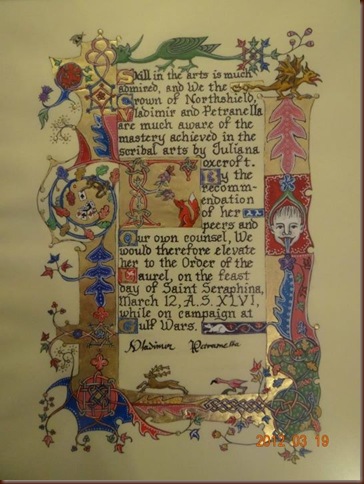 Skill in the arts is much
admired, and We the
Crown of Northshield,
Vladimir and Petranella
are much aware of the
mastery achieved in the
scribal arts by Juliana
Foxcroft.
By the
recomm-
endation
of her
peers and
Our own counsel, We
would therefore elevate
her to the Order of the
Laurel, on the feast
day of Saint Seraphina,
March 12, A.S. XLVI,
while on campaign at
Gulf Wars.
Vladimir Petranella
2012 03 19